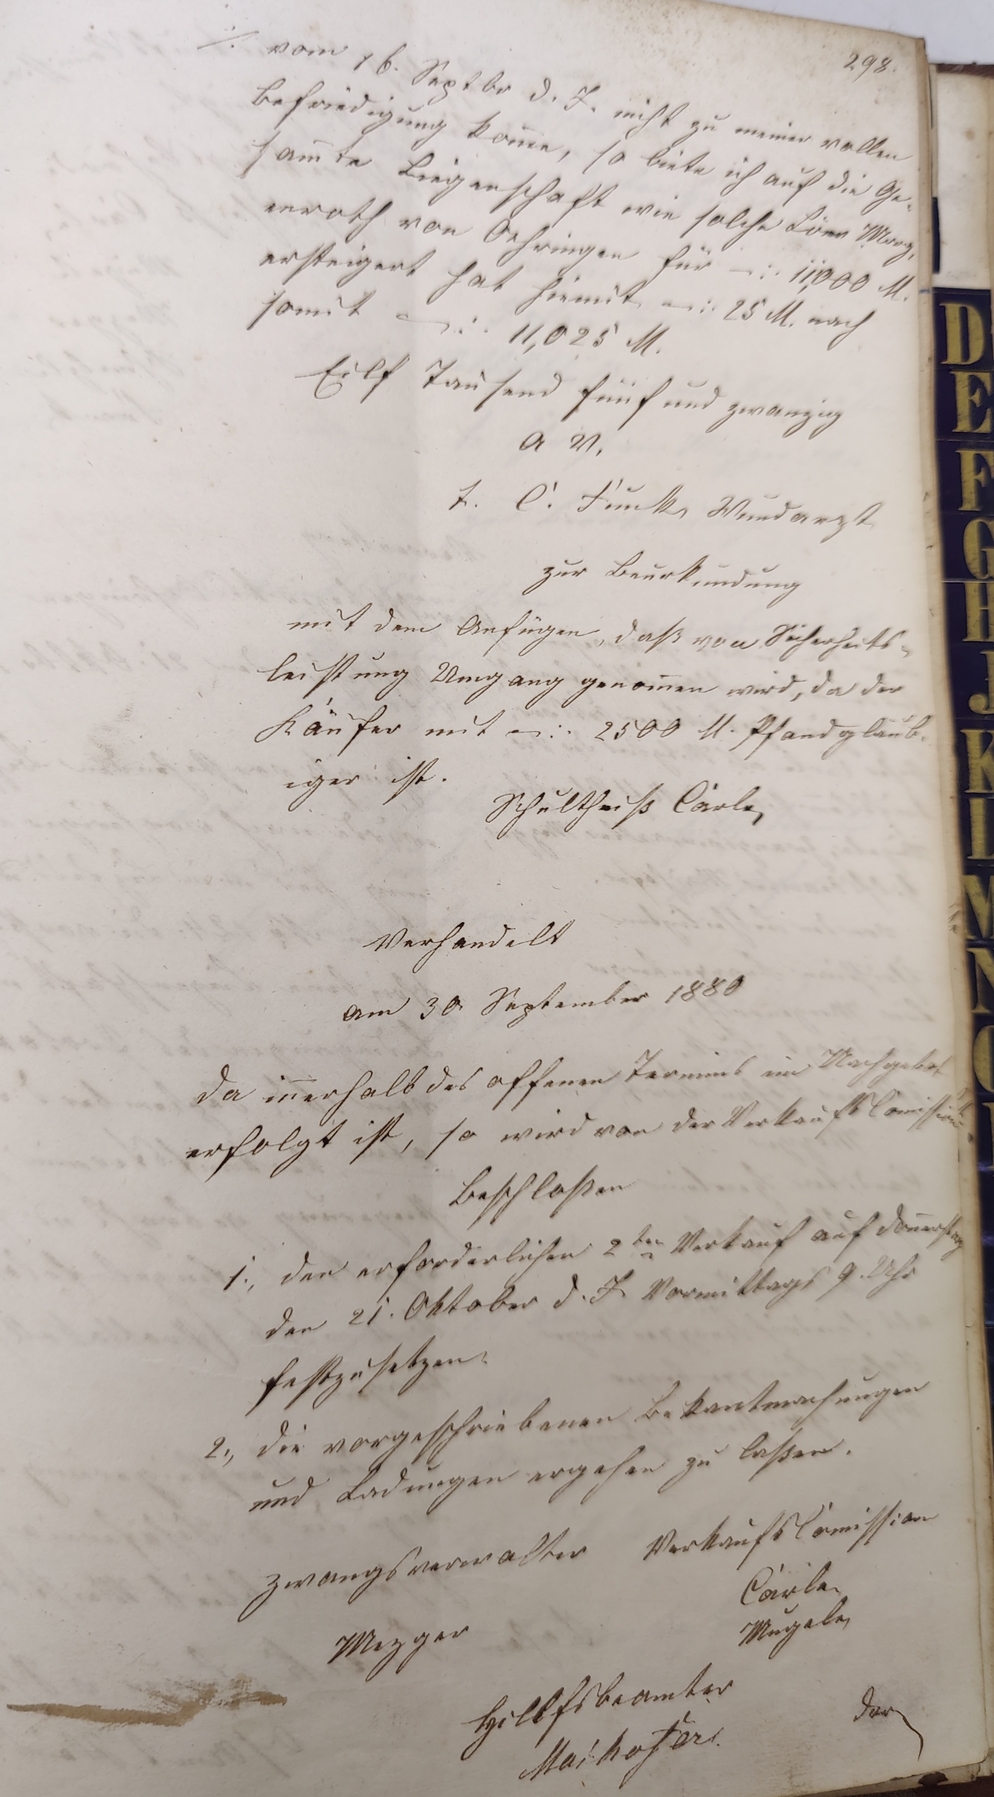 298.
vom 16. Septbr d. J. nicht zu meiner vollen
Befriedigung kom̄e, so biete ich auf die Ge-
sam̄te Liegenschaft wie solche Löw Marg.
enroth von Oehringen für –:: 11,000 M.
ersteigert hat hiemit –:: 25 M. nach
somit –:: 11,025 M.
Eilf Tausend fünf und zwanzig
a V.
t. C. Funk, Wundarzt
zur Beurkundung
mit dem Anfügen, daß von Sicherheits-
leistung Umgang genom̄en wird, da der
Käufer mit –:: 2500 M. Pfandgläub-
iger ist.
Schultheiß Carle,
Verhandelt
am 30. September 1880
Da in̄erhalb des offenen Termins ein Nachgebot
erfolgt ist, so wird von der Verkaufs Com̄ission
Beschloßen
1., den erforderlichen 2ten Verkauf auf Don̄erstag
den 21. Oktober d. J. Vormittags 9 Uhr
festzusetzen.
2., die vorgeschriebenen Bekantmachungen
und Ladungen ergehen zu laßen.
Zwangsverwalter Verkaufs Com̄ission
Mezger Carle,
Mugele,
Hilfsbeamter
Maihofer.
Der
D
E
F
G
H
J
K
L
M
N
O